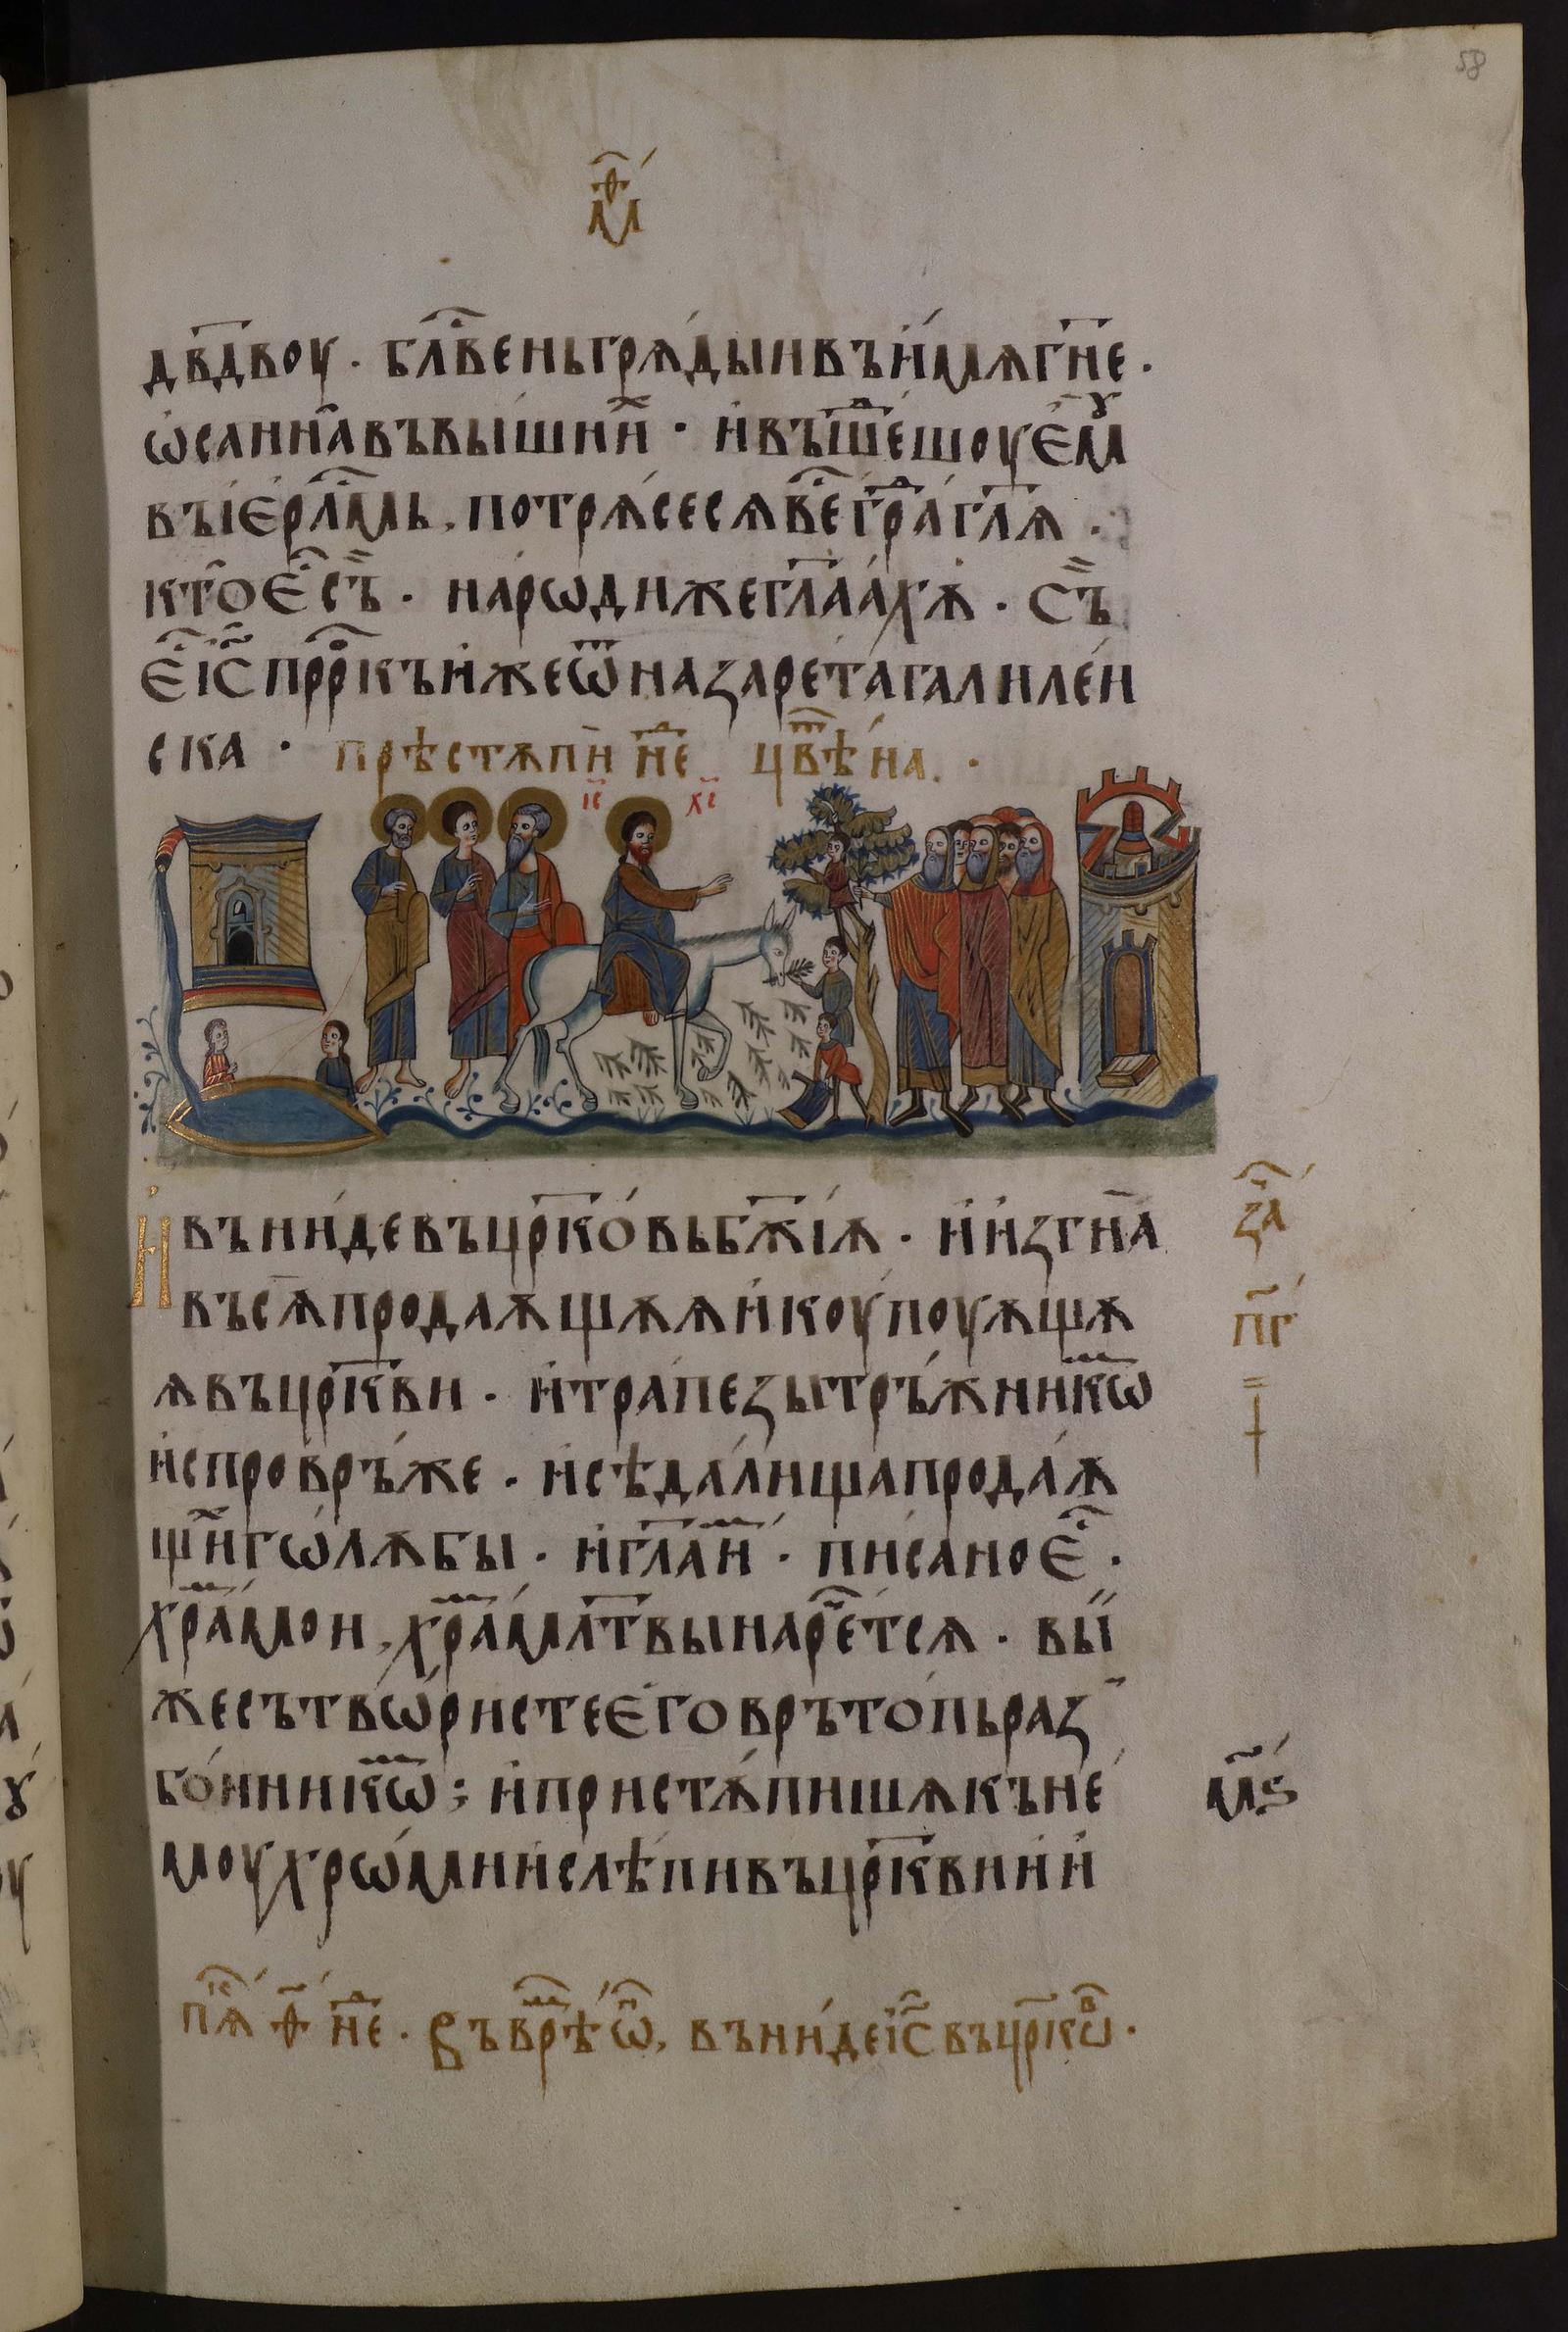 58
мⷴ҇
дв҃двоу · блⷭ҇венъ грѧ́дыи въ и҆́мѧ гн҃е ·
ѡ҆санна въ вы́шнииⷯ · и҆ въшеⷣшоу є҆мꙋ
въ і҆є҆рⷭ҇лмль, потрѧ́сесѧ вⷭ҇е граⷣ гл҃ѧ ·
кто єⷭ҇ съ · наро́ди же гл҃аахѫ · съ
єⷭ҇ і҆с҃ прⷪ҇ркъ и҆же ѿ назаре́та галиле́и
ска · прѣстѫпи неⷣ цвⷮѣна ·
іс҃ хс҃
И҆ въни́де въ цр҃ко́вь бж҃іѫ · и҆ и҆згна
въсѧ продаѫщѫѧ и҆ коупоуѫщѫ
ѧ въ цр҃кви · и҆ трапезы тръ́жникѡⷨ
и҆спровръ́же · и҆ сѣда́лища прода́ѫ
щиⷯ гѡ́лѫбы · и҆ гл҃а иⷨ · пи́сано єⷭ҇ ·
храⷨ мои, храⷨ мл҃твы нарⷱ҇етсѧ · вы́
же сътвѡ́ристе є҆го врътопь раз
бо́иникѡⷨ ; и҆ пристѫ́пишѧ къ не́
моу хрѡ́мии и҆ слѣпи въ цр҃кви и҆ и҆
заⷱ҇
пⷭ҇
мѕ҃
пѧⷦ҇ ѳ҃ неⷣ · Въ врⷨѣ ѡⷩ҇, въни́де і҆с҃ въ цр҃коⷡ ·